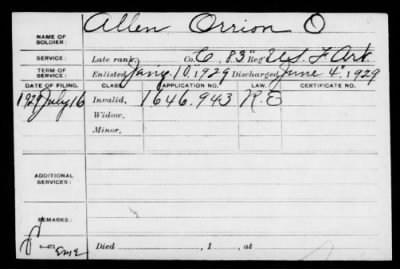 Allen Orrion O
NAME OF SOLDIER:
SERVICE: Late rank, Co. C, 83" Reg't U.S. F. Art.
TERM OF SERVICE: Enlisted Jan'y 10", 1929 Discharged June 4", 1929
DATE OF FILING. CLASS. APPLICATION NO. LAW. CERTIFICATE NO.
1929 July 16 Invalid, 1646.943 R.E
Widow,
Minor,
ADDITIONAL SERVICES:
REMARKS:
Died , 1 , at